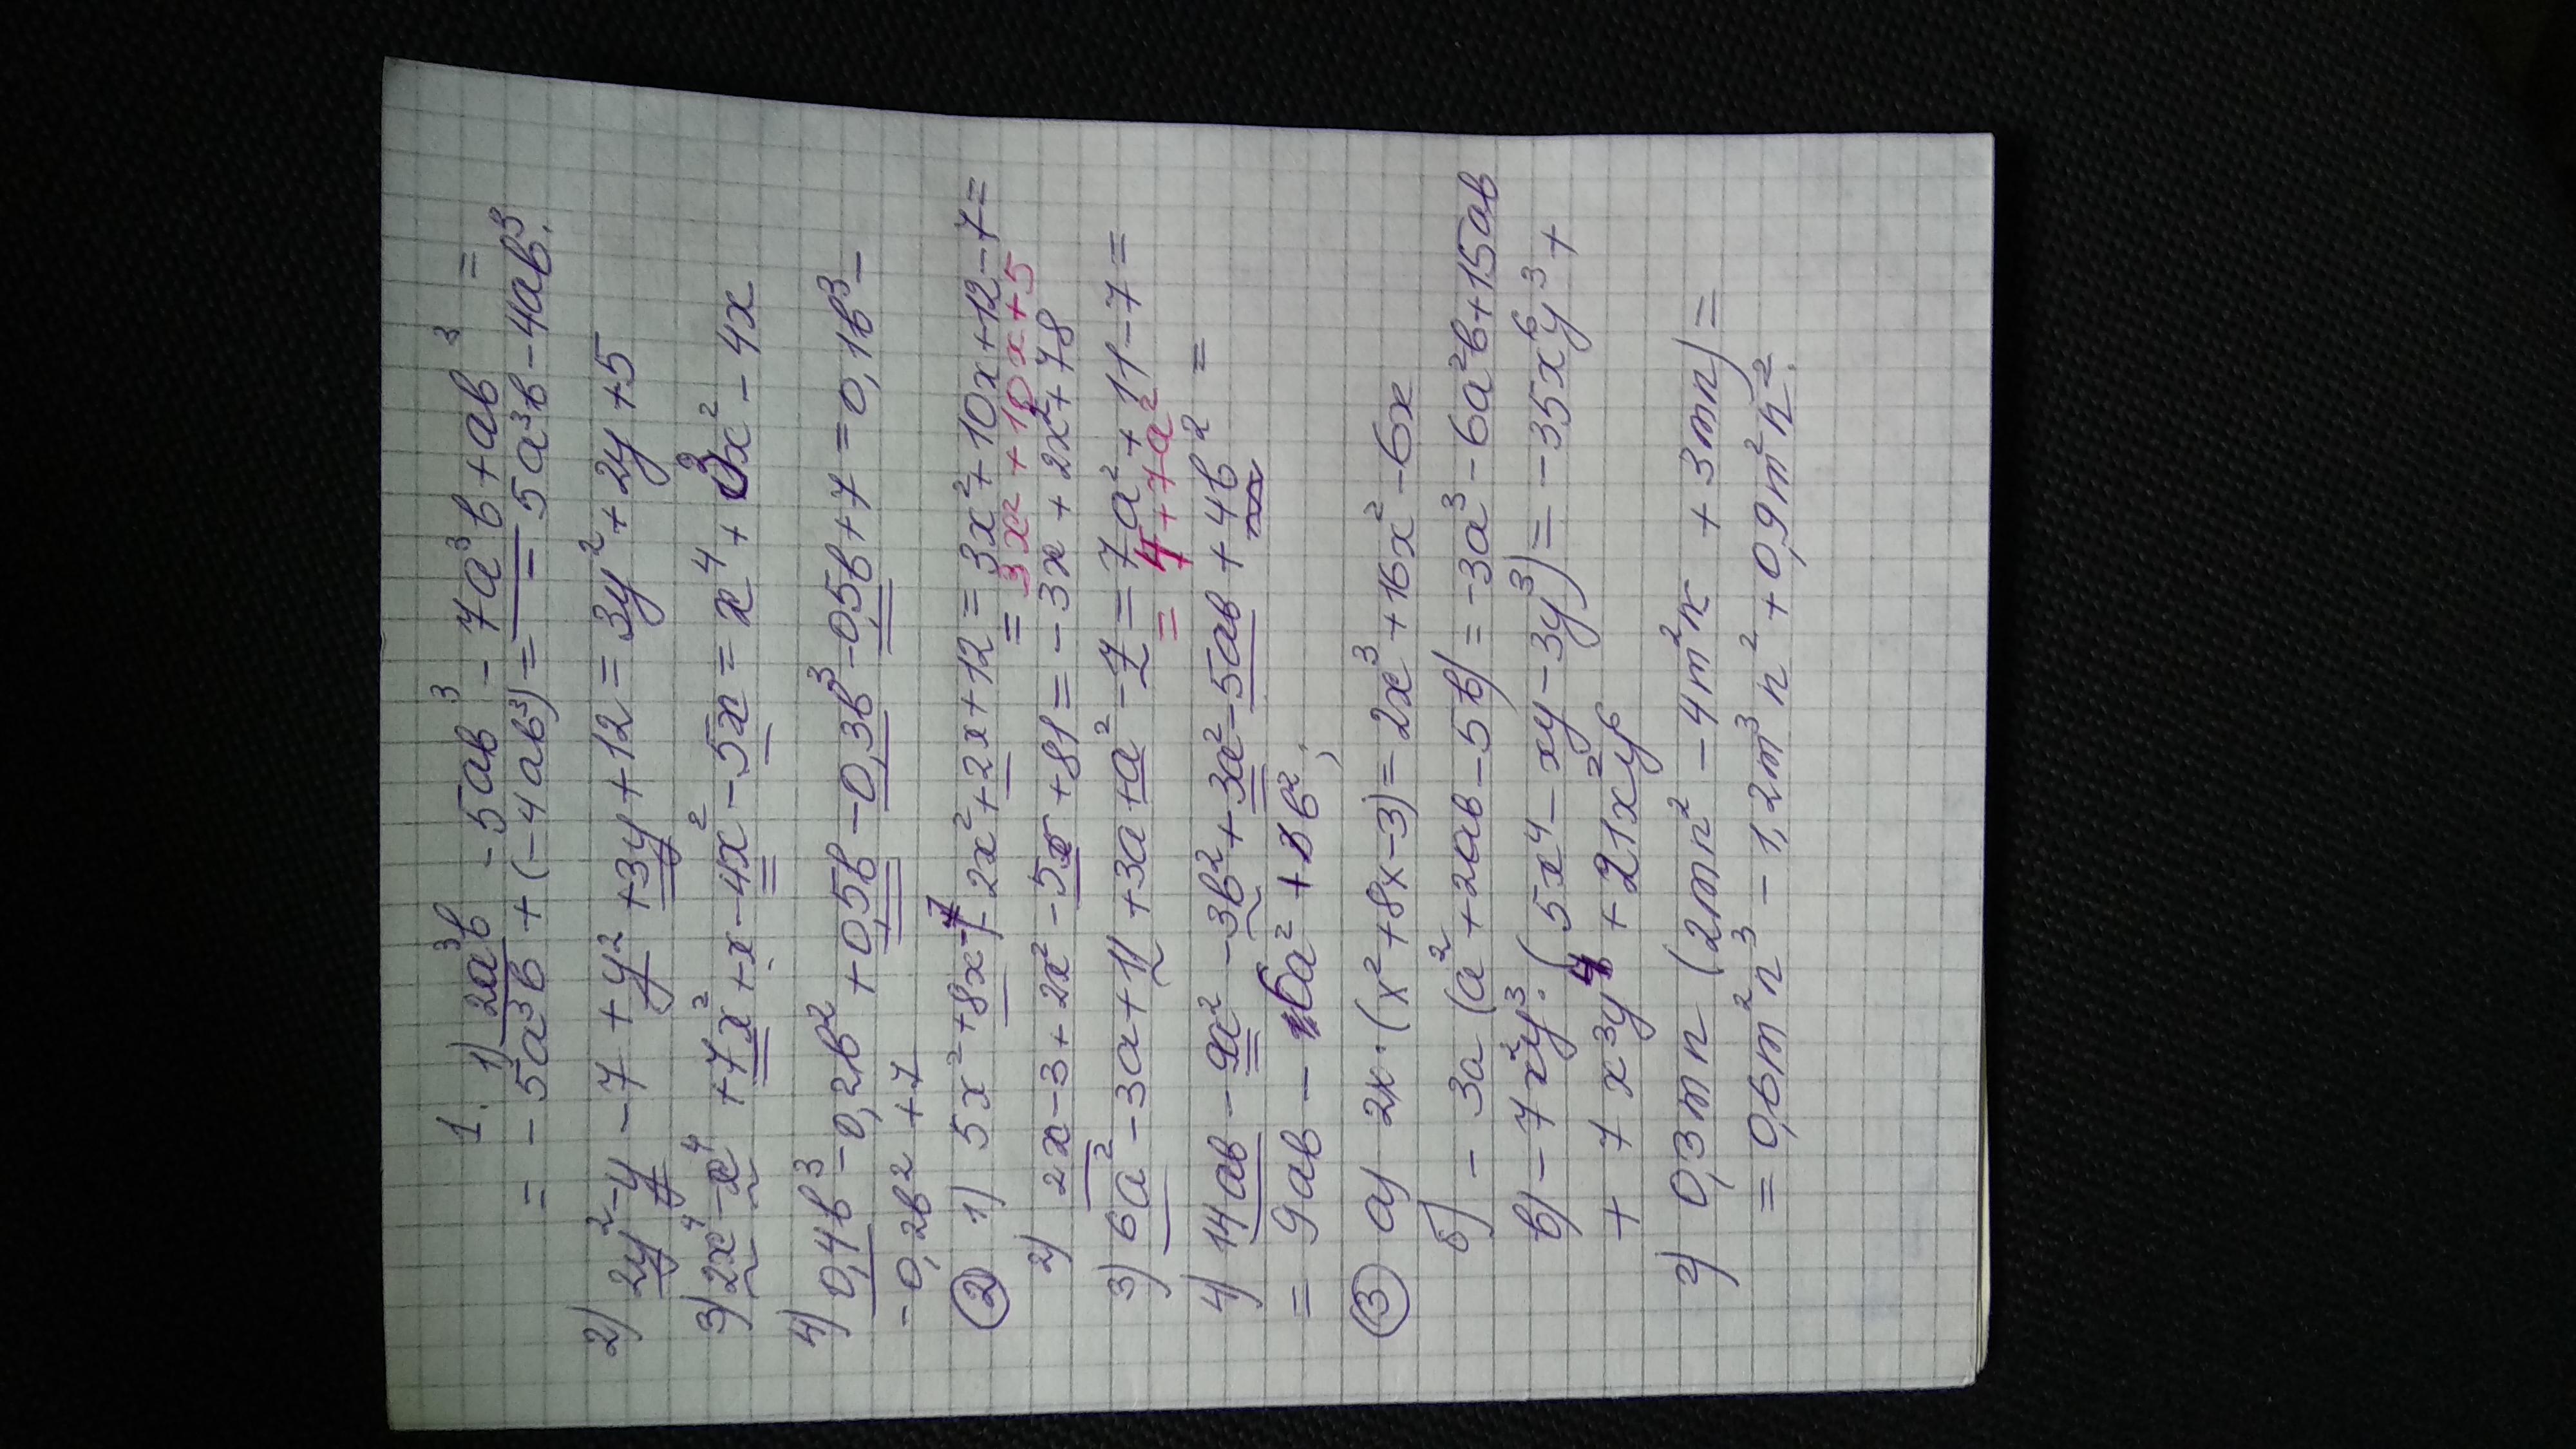 1. 1) 2a³b - 5ab³ - 7a³b + ab³ =
= - 5a³b + (-4ab³) = = 5a³b - 4ab³.
2) 2y² - y - 7 + y² + 3y + 12 = 3y² + 2y + 5
3) 2x⁴ - x⁴ + 7x² + x - 4x² - 5x = x⁴ + 3x² - 4x
4) 0,4b³ - 0,2b² + 0,5b - 0,3b³ - 0,5b + 7 = 0,1b³ -
- 0,2b² + 7
② 1) 5x² + 8x - 7 - 2x² + 2x + 12 = 3x² + 10x + 12 - 7 =
= 3x² + 10x + 5
2) 2x - 3 + 2x² - 5x + 81 = - 3x + 2x² + 78
3) 6a² - 3a + 11 + 3a + a² - 7 = 7a² + 11 - 7 =
= 4 + 7a²
4) 14ab - 9a² - 3b² + 3a² - 5ab + 4b² =
= 9ab - 6a² + b²;
③ а) 2x · (x² + 8x - 3) = 2x³ + 16x² - 6x
б) - 3a (a² + 2ab - 5b) = - 3a³ - 6a²b + 15ab
в) - 7x²y³ · (5x⁴ - xy - 3y³) = - 35x⁶y³ +
+ 7x³y⁴ + 21x²y⁶
г) 0,3mn (2mn² - 4m²n + 3mn) =
= 0,6m²n³ - 1,2m³n² + 0,9m²n².